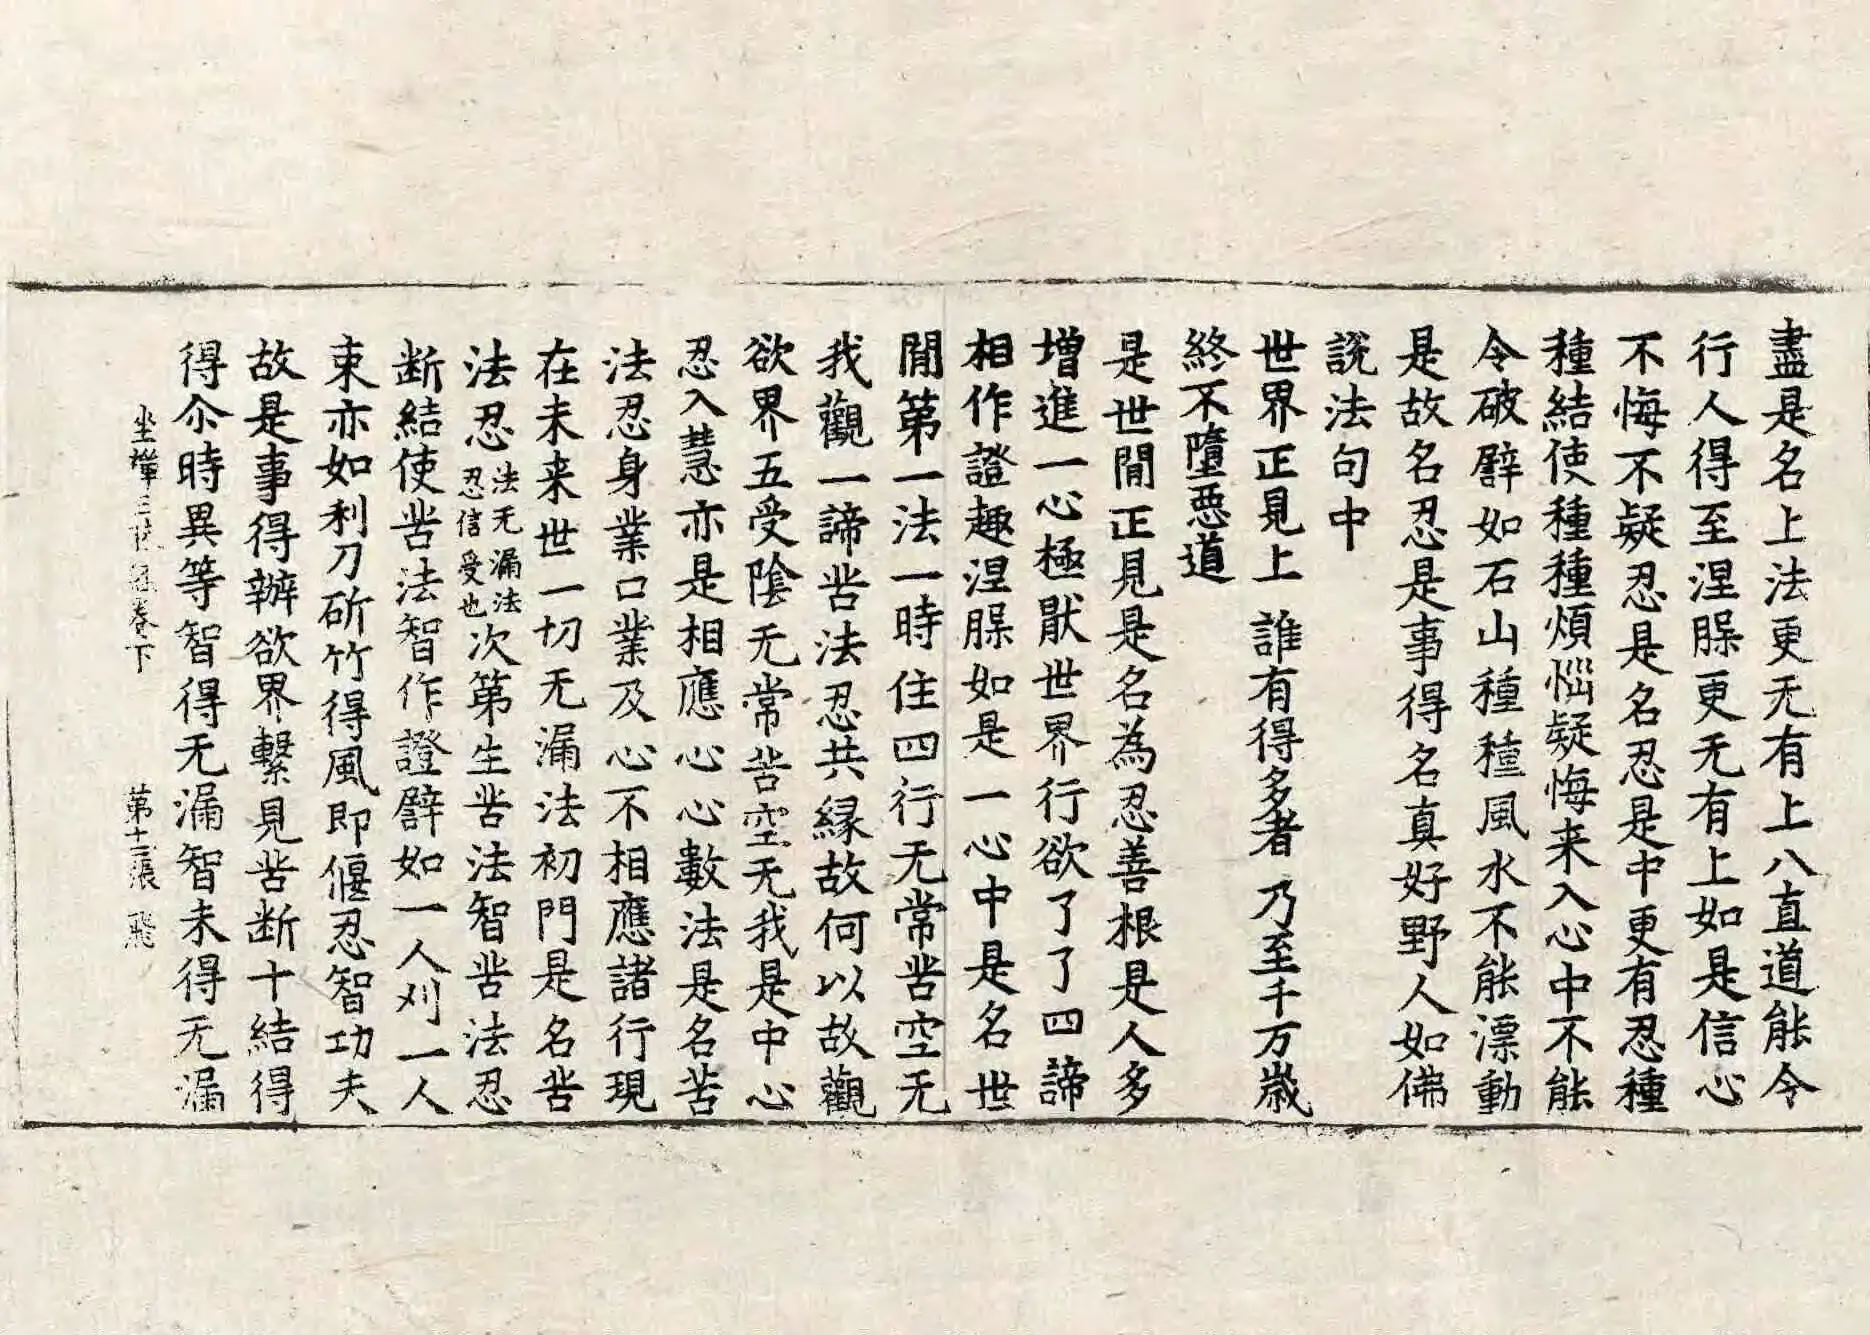 盡是名上法更无有上八直道能令
行人得至涅槃更无有上如是信心
不悔不疑忍是名忍是中更有忍種
種結使種種煩惱疑悔来入心中不能
令破譬如石山種種風水不能漂動
是故名忍是事得名真好野人如佛
說法句中
世界正見上 誰有得多者 乃至千万歲
終不墮惡道
是世閒正見是名為忍善根是人多
增進一心極猒世界行欲了了四諦
相作證趣涅槃如是一心中是名世
閒第一法一時住四行无常苦空无
我觀一諦苦法忍共縁故何以故觀
欲界五受陰无常苦空无我是中心
忍入慧亦是相應心心數法是名苦
法忍身業口業及心不相應諸行現
在未来世一切无漏法初門是名苦
法忍法无漏法忍信受也次第生苦法智苦法忍
断結使苦法智作證譬如一人刈一人
束亦如利刀斫竹得風即偃忍智功夫
故是事得辦欲界繫見苦断十結得
得尒時異等智得无漏智未得无漏
坐禪三昧經卷下 第十二張 飛